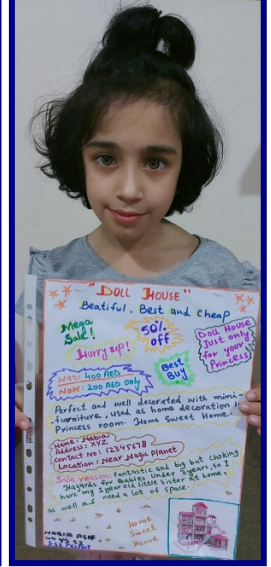 "DOLL HOUSE"
Beatiful, Best and Cheap
Mega
Sale!
50%
off
Doll House
Just only
for your
Princess
Hurry up!
Best
Buy
Was: 400 AED
Now: 200 AED only
Perfect and well decorated with mini-
furniture, used as home decoration in
Princess room. Home Sweet Home.
Name: Nabia
Address: XYZ
Contact No: 12345678
Location: Near Magic Planet
Sale reason: Fantastic and big but choking
Hazards for Babies Under 3years, So I
have my 1year old little sister at home,
as well as need a lot of space.
Home
Sweet
Home
NABIA ASIF